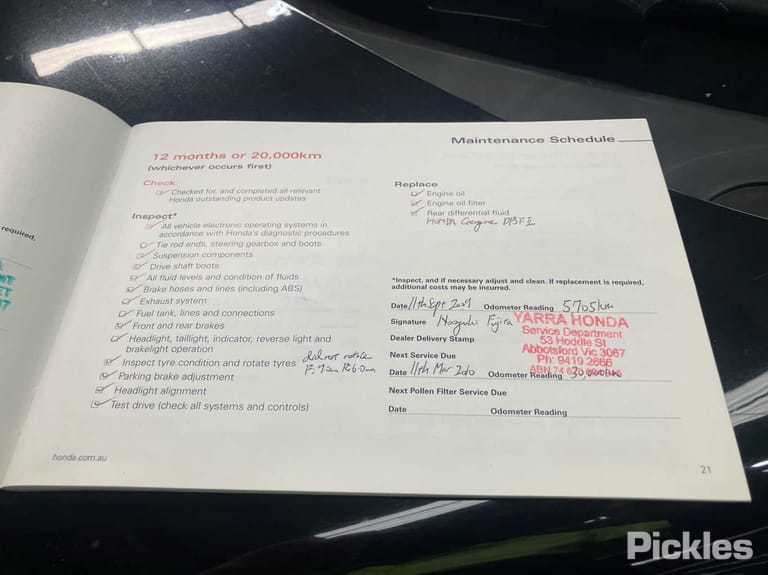 required,
Maintenance Schedule
12 months or 20,000km
(whichever occurs first)
Check
Checked for, and completed all relevant
Honda outstanding product updates
Inspect*
All vehicle electronic operating systems in
accordance with Honda's diagnostic procedures
Tie rod ends, steering gearbox and boots
Suspension components
Drive shaft boots
All fluid levels and condition of fluids
Brake hoses and lines (including ABS)
Exhaust system
Fuel tank, lines and connections
Front and rear brakes
Headlight, taillight, indicator, reverse light and
brakelight operation
Inspect tyre condition and rotate tyres did not rotate
Parking brake adjustment
Headlight alignment
Test drive (check all systems and controls)
Replace
Engine oil
Engine oil filter
Rear differential fluid
HONDA Genuine DPSF II
*Inspect, and if necessary adjust and clean. If replacement is required,
additional costs may be incurred.
Date 11th Sept Odometer Reading 5705km
Signature
Dealer Delivery Stamp
YARRA HONDA
Service Department
53 Hoddle St
Abbotsford Vic 3067
Ph: 9419 2666
Next Service Due
Date 11th Mar 2010 Odometer Reading
Next Pollen Filter Service Due
Date Odometer Reading
honda.com.au
21
Pickles